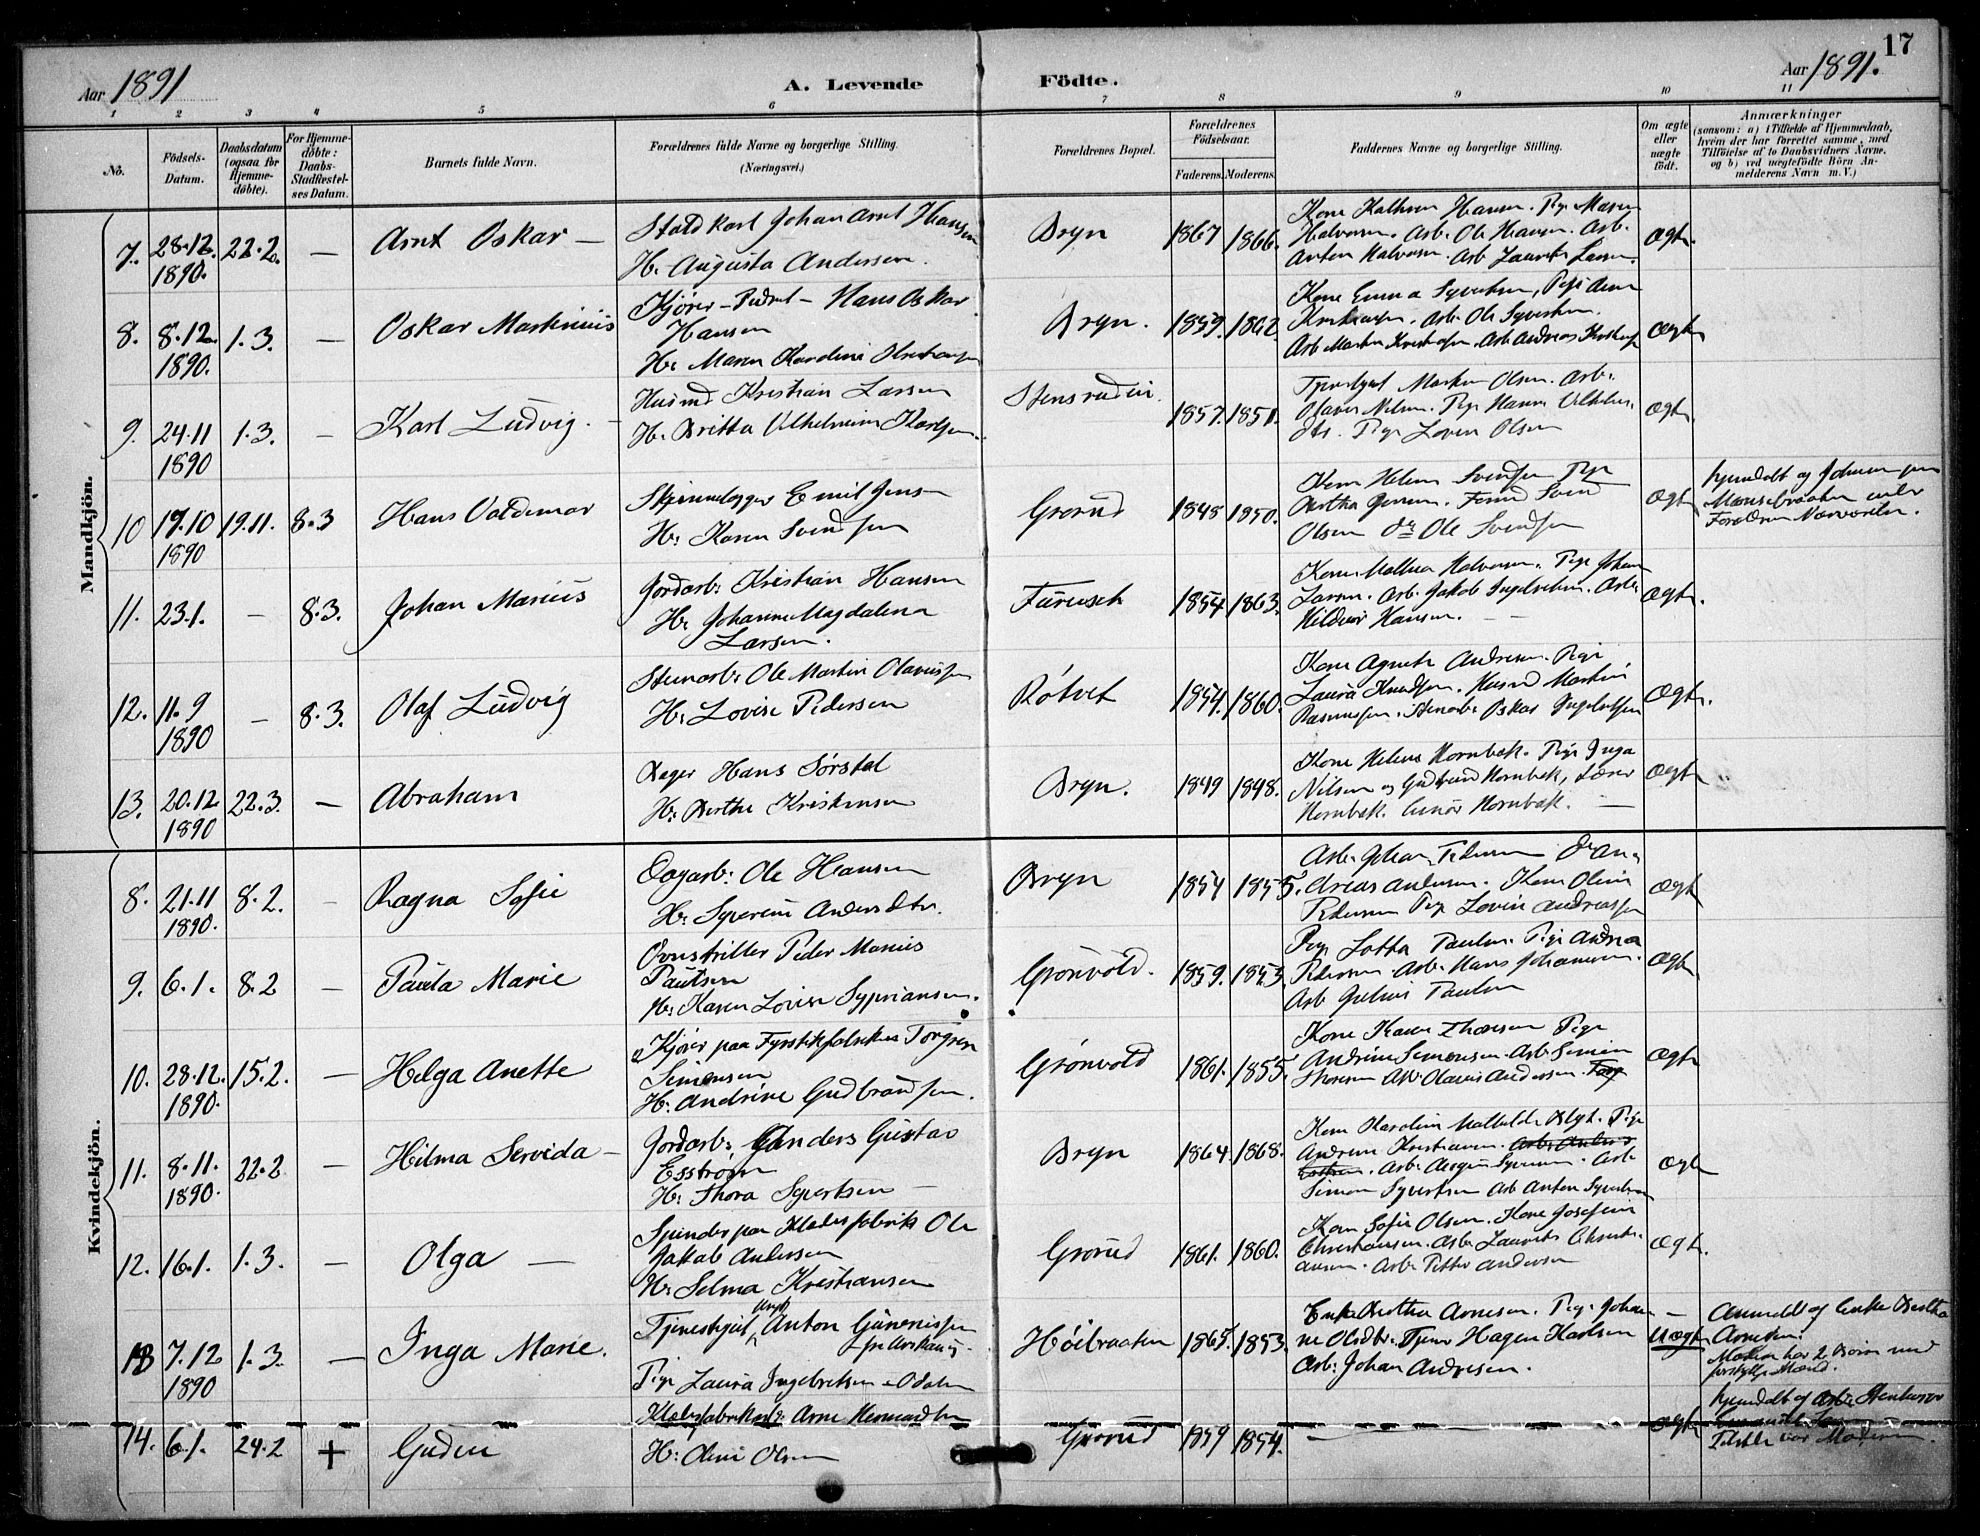 17
Aar 1891
A. Levende Födte.
Aar 1891.
1 2 3 4 5 6 7 8 9 10 11
No.
Födsels-Datum.
Daabsdatum (ogsaa for Hjemme-döbte).
For Hjemme-döbte: Daabs-Stadfæstel-ses Datum.
Barnets fulde Navn.
Forældrenes fulde Navne og borgerlige Stilling. (Næringsvei.)
Forældrenes Bopæl.
Forældrenes Födselsaar.
Faderens. Moderens.
Faddernes Navne og borgerlige Stilling.
Om ægte eller uægte födt.
Anmærkninger
(saasom: a) i Tilfælde af Hjemmedaab,
hvem der har forrettet samme, med
Tilföielse af to Daabsvidners Navne,
og b) ved uægtefödte Börn An-
melderens Navn m. V.)
Mandkjön.
7. 28.12. 1890. 22.2. — Arnt Oskar —
Staldkarl Johan Arnt Hansen
H: Augusta Andersen.
Bryn 1867 1866.
Kone Kathren Hansen. Pige Maren
Halvorsen. Arb. Ole Hansen. Arb.
Anton Halvorsen. Arb. Laurits Larsen.
Ægte.
8. 8.12. 1890. 1.3. — Oskar Martinius
Kjører Hans Oskar
Hansen
H: Maren Karoline Kristiansen
Bryn. 1859. 1862
Kone Emma Syvertsen, Pige
Arb. Ole Syvertsen.
Arb Martin Kristiansen. Arb Andreas
Ægte
9. 24.11 1890 1.3. — Karl Ludvig. —
Husmd Kristian Larsen
H: Britta Vilhelmine Karlsen.
Stensrudeie. 1857. 1851.
Martin Olsen. Arb:
Nilsen. Pige Hanna
dtr. Pige Lovise Olsen
Ægte.
10 17.10 1890 19.11. 8.3 Hans Valdemar
Skinnelægger Emil Jensen
H: Karen Svendsen
Grorud 1848 1850.
Kone Helene Svendsen Pige
Bertha Jensen. Svend
Olsen Do Ole Svendsen
Ægte
hjemdøbt af
Forældrene Nærværelse.
11. 23.1. — 8.3. Johan Marius
Jordarb: Kristian Hansen
H: Johanne Magdalena
Larsen.
Furuset 1854 1863.
Kone Mathea Halvorsen. Pige Johan
Larsen. Arb. Jakob Ingebretsen. Arb.
Hildvor Hansen. —
Ægte.
12. 11.9 1890 — 8.3. Olaf Ludvig
Stenarb: Ole Martin Olaussen
H: Lovise Pedersen
Rötvet 1854. 1860.
Kone Agnete Andresen. Pige
Laura Knudsen. Husmd Martin
Rasmussen. Stenarb: Oskar Ingebretsen
Ægte.
13. 20.12 1890 22.3. — Abraham
Bager Hans Sörstal
H: Berthe Kristensen
Bryn. 1849 1848.
Kone Helene Hornbæk. Pige Inga
Nilsen og Gudbrand Hornbæk, Lærer
Hornbæk. Gunör Hornbæk. —
Ægte
Kvindekjön.
8. 21.11 1890. 8.2. — Ragna Sofie
Dagarb: Ole Hansen
H: Syverine Andersdtr.
Bryn 1854 1855.
Arb. Johan Pedersen Do An-
dreas Andersen. Kone Oline
Pedersen Pige Lovise Andreassen
Ægte
9. 6.1. 8.2 — Paula Marie
Ovnstiller Peder Marius
Paulsen
H: Karen Lovise Syprianssen.
Grönvold. 1859. 1853
Pige Lotta Paulsen. Pige Andrea
Pedersen Arb. Hans Johannesen.
Arb Julius Paulsen
Ægte
10. 28.12. 1890. 15.2. — Helga Anette
Kjører paa Fyrstikfabriken Torgren
Simensen
H: Andrine Gudbrandsen.
Grönvold 1861. 1855.
Kone Karen Thoresen Pige
Andrine Simensen. Arb. Simen
Thoresen Arb. Olaus Andersen.
Ægte
11. 8.11. 1890. 22.2 — Hilma Servida —
Jordarb: Anders Gustav
Esström
H: Thora Syvertsen —
Bryn 1864. 1868.
Kone Karoline Mathilde Pige
Andrine Kristiansen. Arb. Anders
Arb. August Syversen. Arb.
Simon Syvertsen Arb Anton Syvertsen
Ægte
12. 16.1. 1.3. — Olga —
Spinder paa Klædesfabrik Ole
Jakob Andersen
H: Selma Kristiansen
Grorud 1861. 1860.
Kone Sofie Olsen. Kone Josefine
Christiansen. Arb. Laurits Christi-
ansen. Arb. Petter Andersen
Ægte.
13 7.12 1890 1.3. — Inga Marie.
Tjenestgut Ungk Anton Gunerussen
fra Aurskoug.
Pige Laura Ingebretsen
Höibraaten 1865. 1853.
Enke Bertha Arnesen. Pige Johan-
ne Olsdtr. Tjener Hagen Karlsen
Arb: Johan Andresen.
— Uægte
Anmeldt af Enke Bertha
Arnesen.
Moderen har 2 Børn med
forskjellige Mænd.
14. 6.1. 24.2 + Guden
Klædesfabrikarb: Arne
H: Oline Olsen
Grorud 1859 1854. —
Ægte
hjemdøbt af Arb:
Moderen.